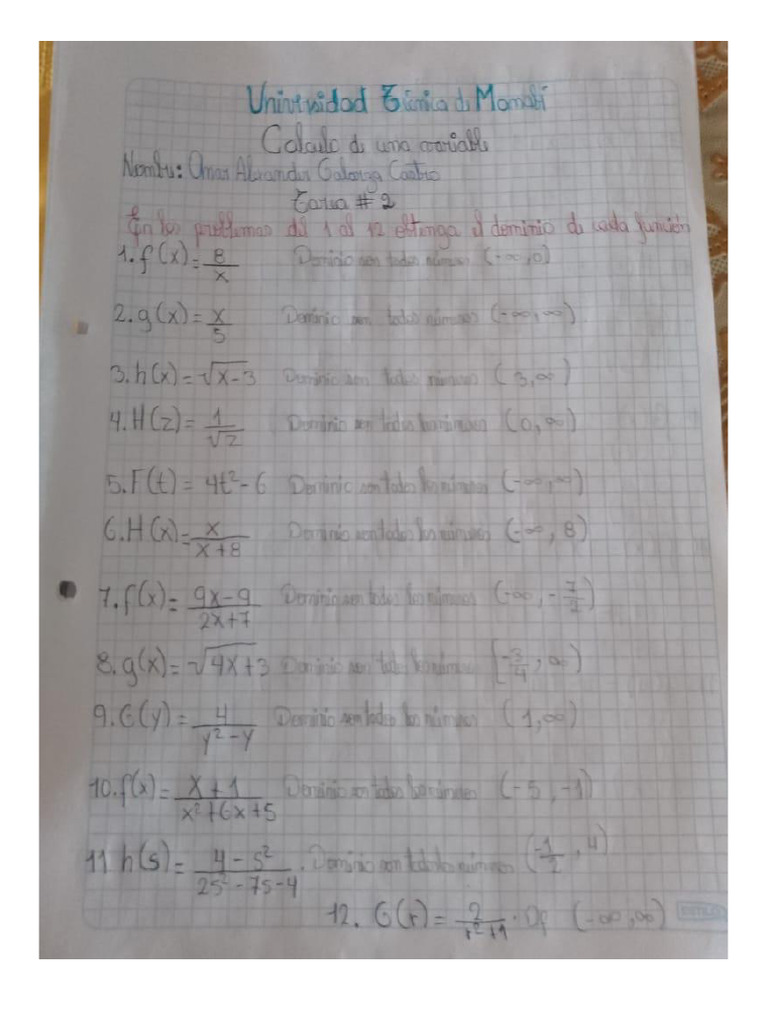 Universidad Técnica de Manabí
Calculo de una variable
Nombre: Omar Alexander Galarza Castro
Tarea # 2
En los problemas del 1 al 12 obtenga el dominio de cada función
1. f(x) = 8/x Dominio son todos números (-∞, 0)
2. g(x) = x/5 Dominio son todos números (-∞, ∞)
3. h(x) = √x-3 Dominio son todos números (3, ∞)
4. H(z) = 1/√z Dominio son todos los números (0, ∞)
5. F(t) = 4t² - 6 Dominio son todos los números (-∞, ∞)
6. H(x) = x/x+8 Dominio son todos los números (-∞, 8)
7. f(x) = 9x-9/2x+7 Dominio son todos los números (-∞, -7/2)
8. g(x) = √4x+3 Dominio son todos los números [-3/4, ∞)
9. G(y) = 4/y²-y Dominio son todos los números (1, ∞)
10. f(x) = x+1/x²+6x+5 Dominio son todos los números (-5, -1)
11 h(s) = 4-s²/2s²-7s-4 . Dominio son todos los números (-1/2, 4)
12. G(r) = 2/r²+1 . Df (-∞, ∞)